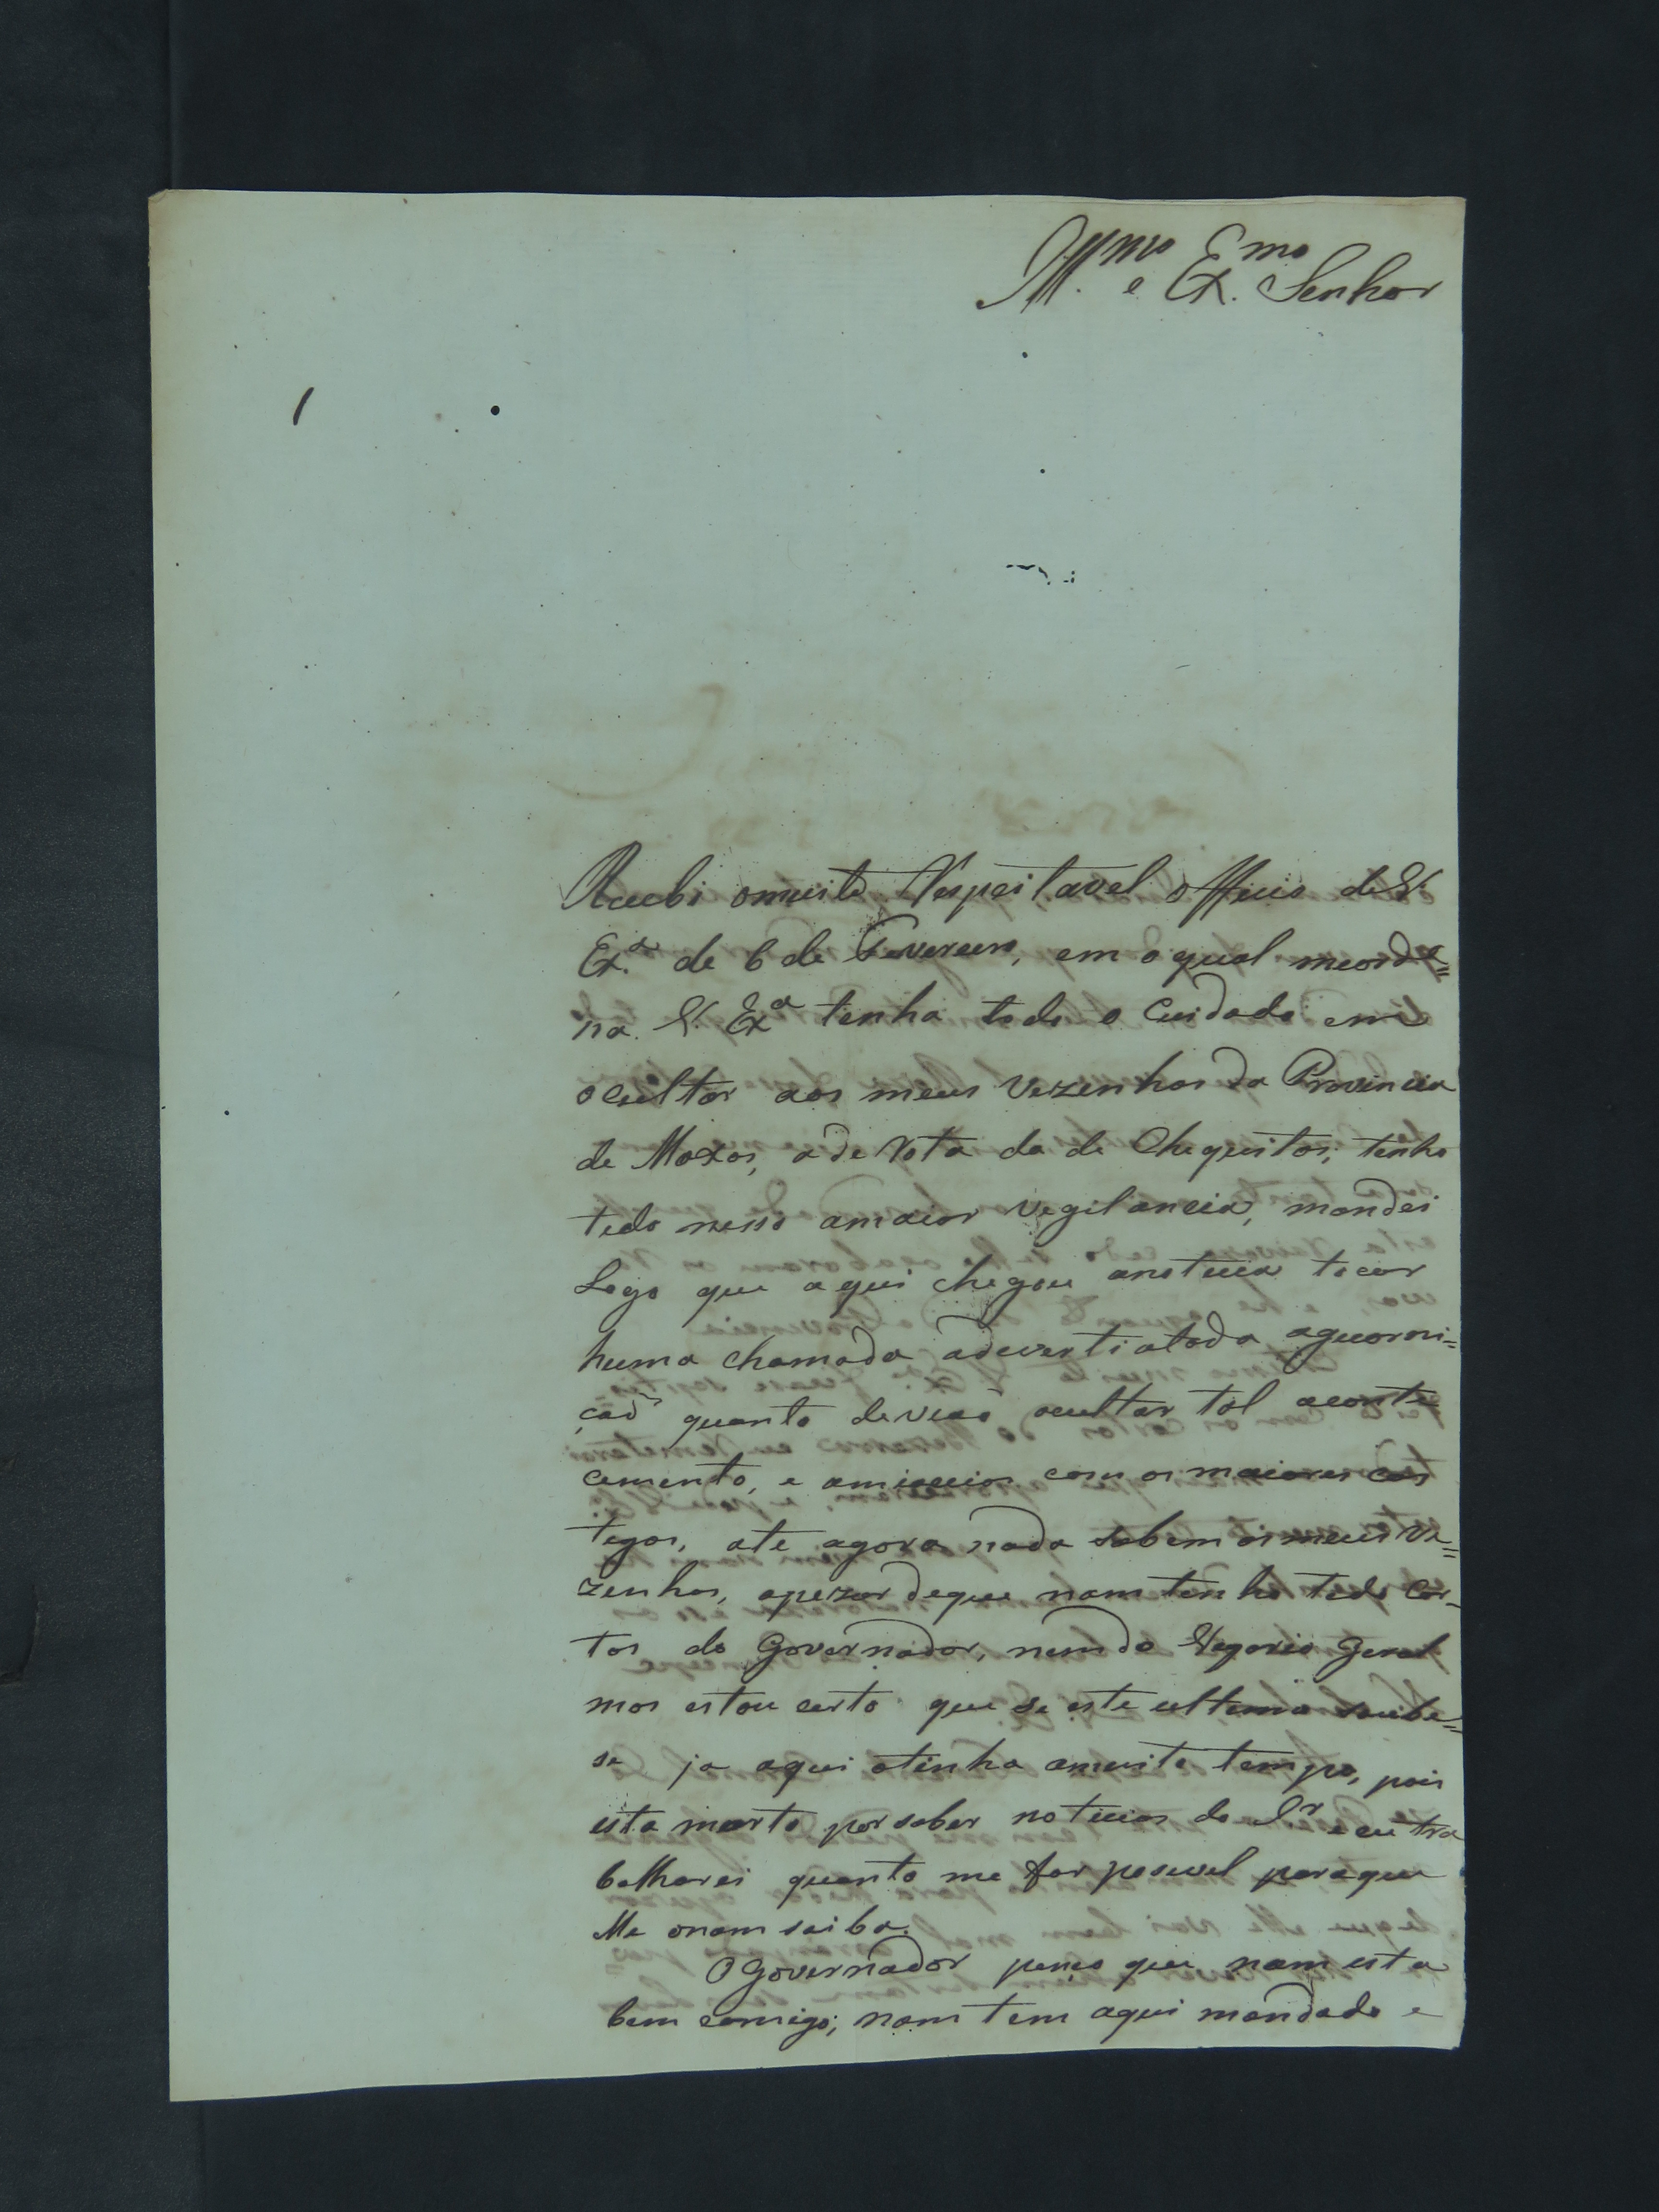 Ill.mo e Ex.mo Senhor
Recebi omuito Respeitavel officio de V.
Ex.a de 6 de Fevereiro, em oqual meorde=
na V. Ex.a tenha todo o Cuidado em
ocultar aos meus Vezenhos da Provincia
de Moxos, a de Rota da de Chequitos; tenho
tido nisso amaior Vegilancia, mandei
Logo que aqui chegou anoticia tocar
huma chamada adeverti atoda aguarni=
çaõ quanto deviaõ ocultar tal aconte
cemento, e amiacei os com os maiores cas
tegos, ate agora nada sabem os meus Ve=
zenhos, apezar deque nam tenho tido Car-
tas do Governador, nem do Vegario Geral
mas estou certo que se este ultemo soube=
se ja aqui otinha amuito tempo, pois
esta morto por saber noticias do Sr. e eu tra
balharei quanto me for posivel paraque
elle onam saiba.
OGovernador penço que nam esta
bem comigo; nam tem aqui mandado e